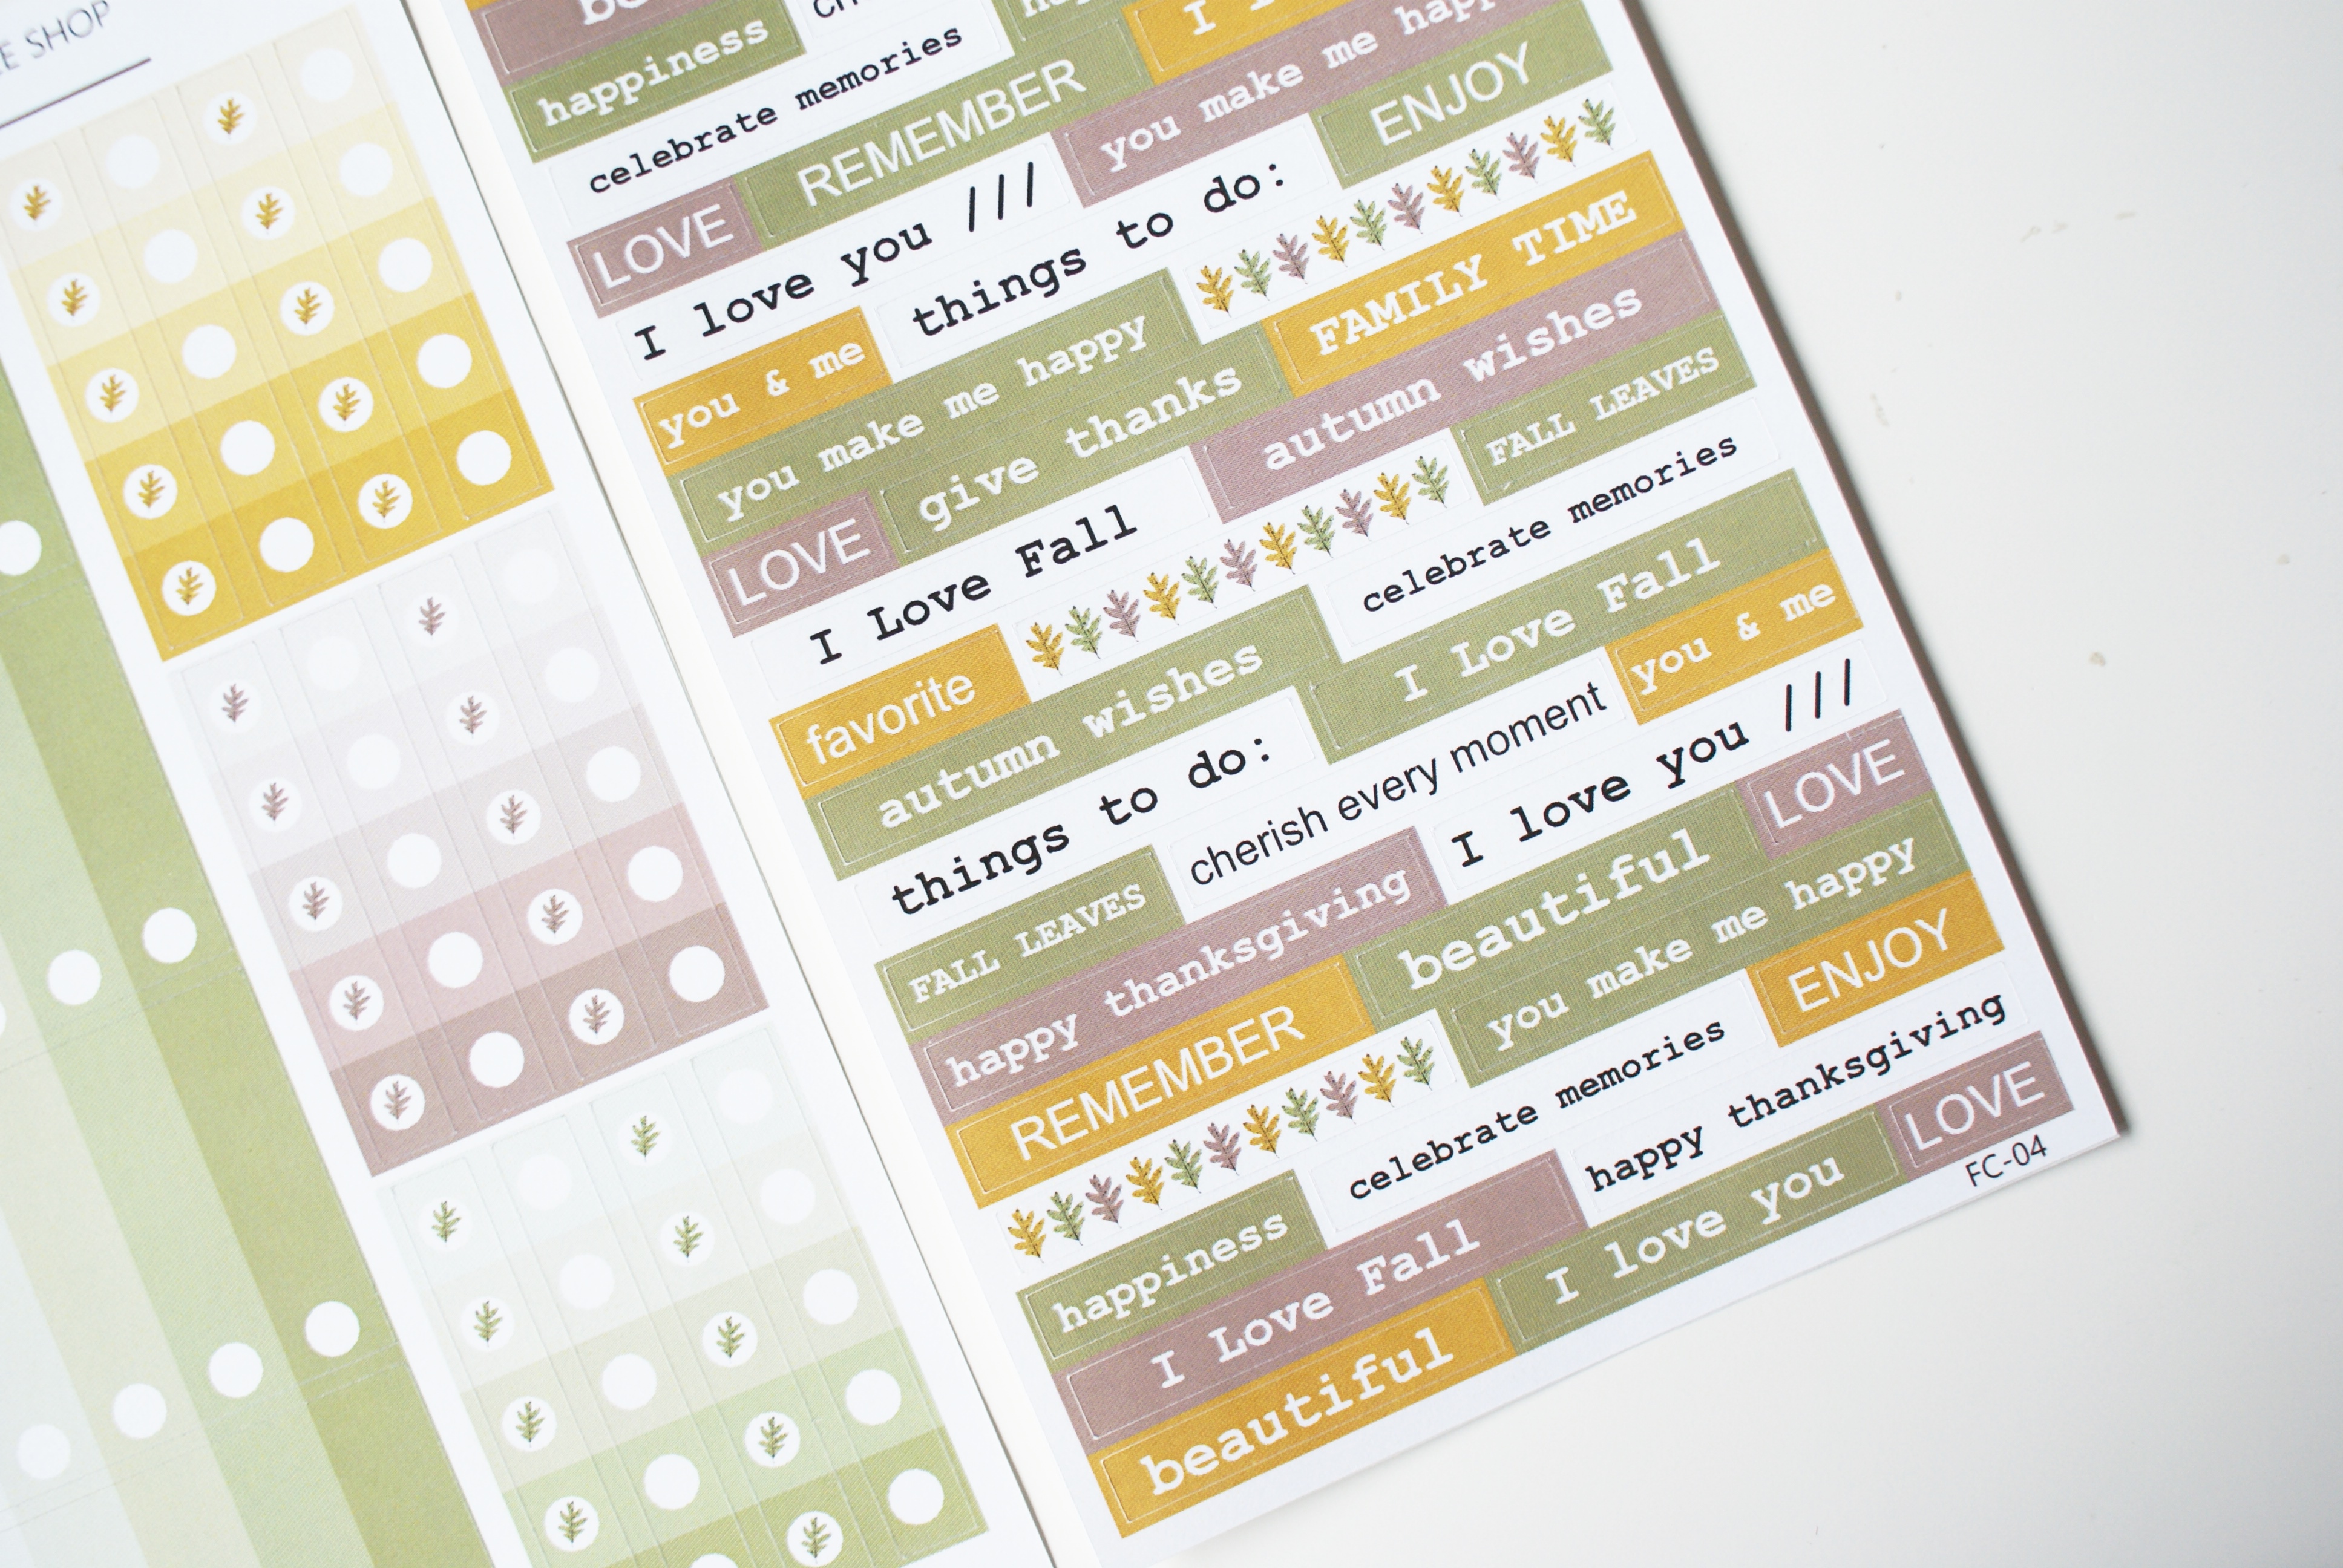 SHOP
happiness
celebrate memories
REMEMBER
you make me
ENJOY
LOVE
I love you ///
things to do:
you & me
you make me happy
FAMILY TIME
give thanks
autumn wishes
LOVE
FALL LEAVES
I Love Fall
celebrate memories
favorite
autumn wishes
I Love Fall
things to do:
cherish every moment
you & me
FALL LEAVES
I love you ///
happy thanksgiving
beautiful
LOVE
REMEMBER
you make me happy
celebrate memories
ENJOY
happiness
happy thanksgiving
I Love Fall
I love you
LOVE
beautiful
FC-04